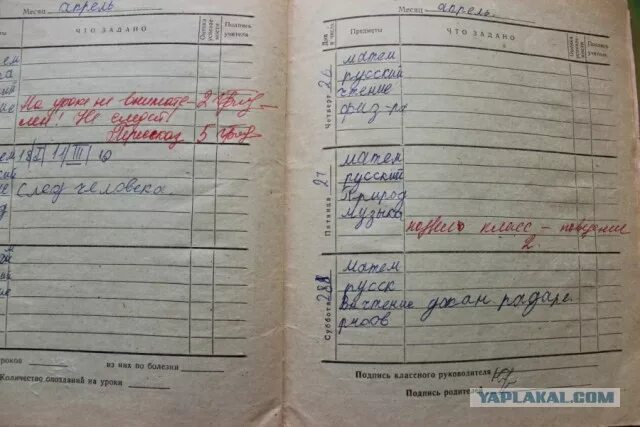 Месяц апрель
ЧТО ЗАДАНО
Оценка успеваемости
Подпись учителя
На уроке не внимате- 2
лен! Не следит
Пересказ 5
след человека.
уроков
из них по болезни
Количество опозданий на уроки
Месяц апрель.
Дни и числа
Предметы
ЧТО ЗАДАНО
Оценка успеваемости
Подпись учителя
Четверг 26
матем
русский
чтение
физ-ра
Пятница 27
матем
русский
Природ
музыка
подвело класс - поведение
2
Суббота 28
матем
русск
Вн чтение
рисов
Подпись классного руководителя
Подпись родителей
YAPLAKAL.COM